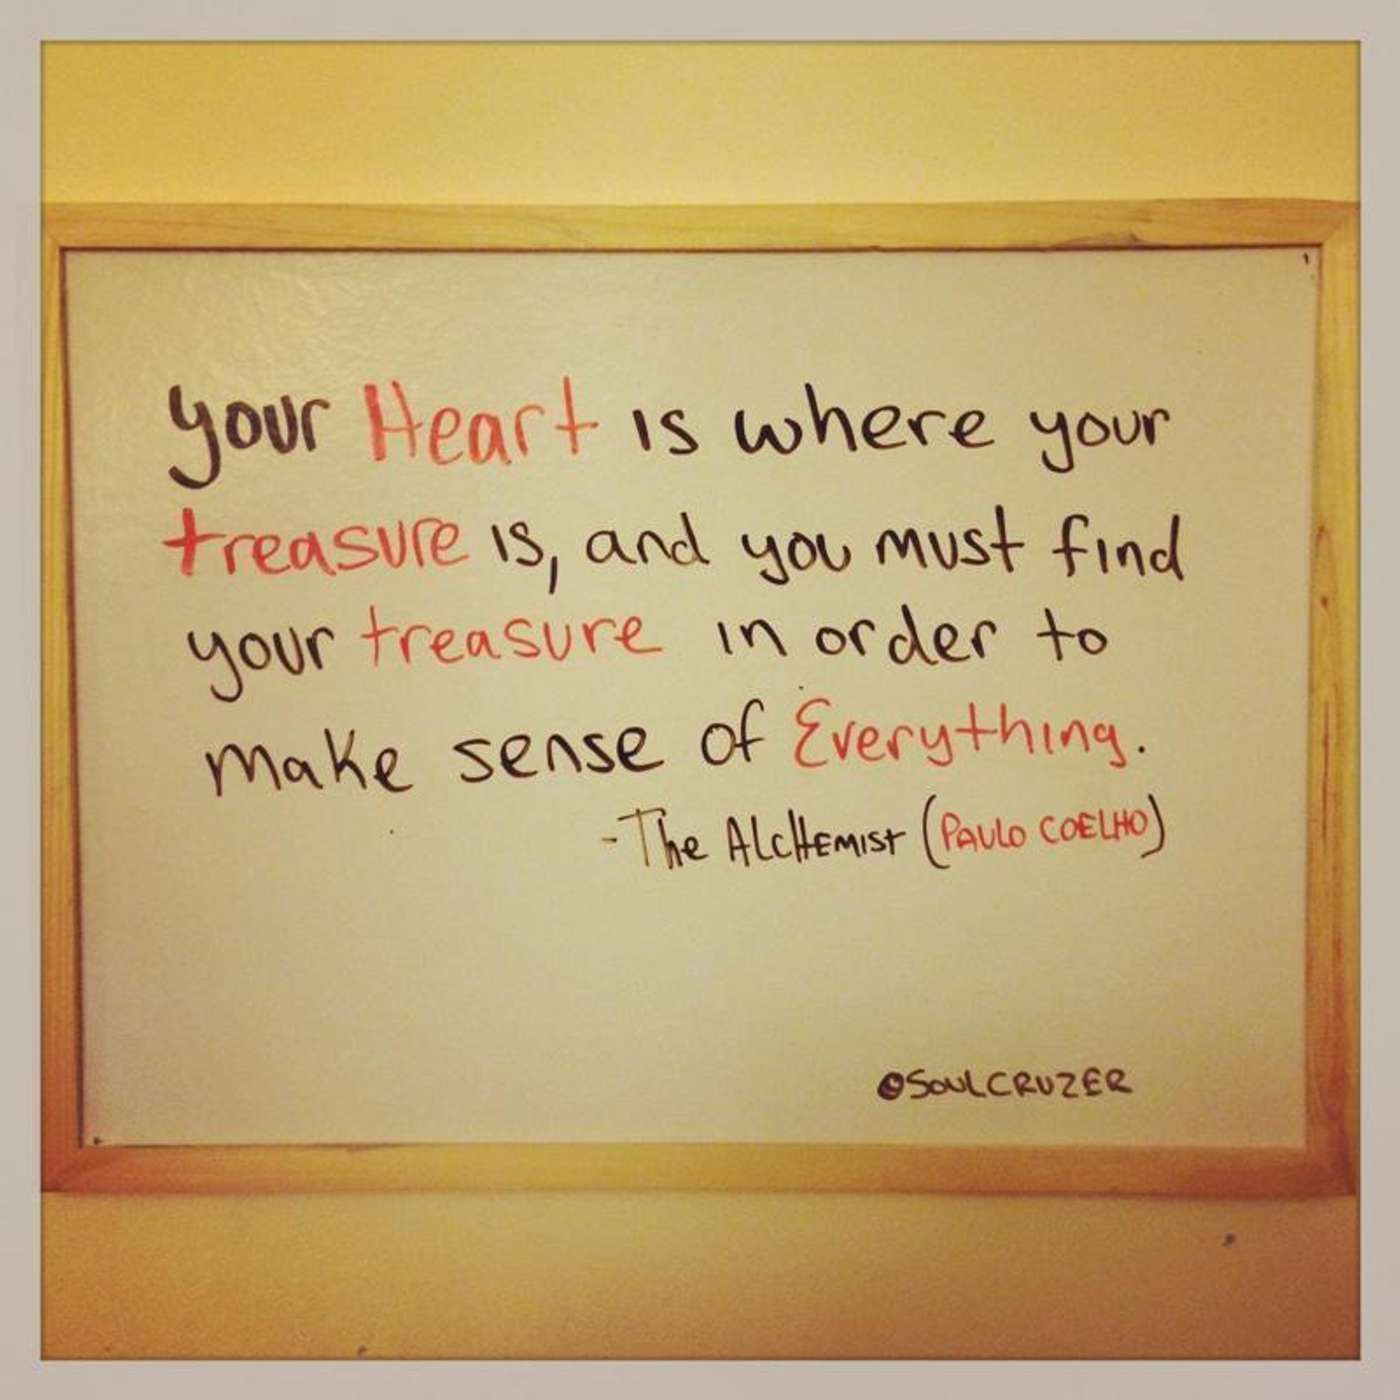 your Heart is where your
treasure is, and you must find
your treasure in order to
make sense of Everything.
-The AlcHEMIST (PAULO COELHO)
@SOULCRUZER